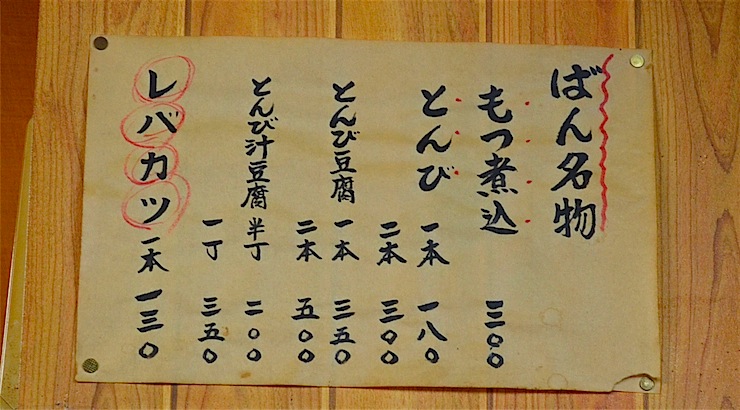 ばん名物
もつ煮込 三〇〇
とんび 一本 一八〇
二本 三〇〇
とんび豆腐 一本 三五〇
二本 五〇〇
とんび汁豆腐 半丁 二〇〇
一丁 三五〇
レバカツ 一本 一三〇